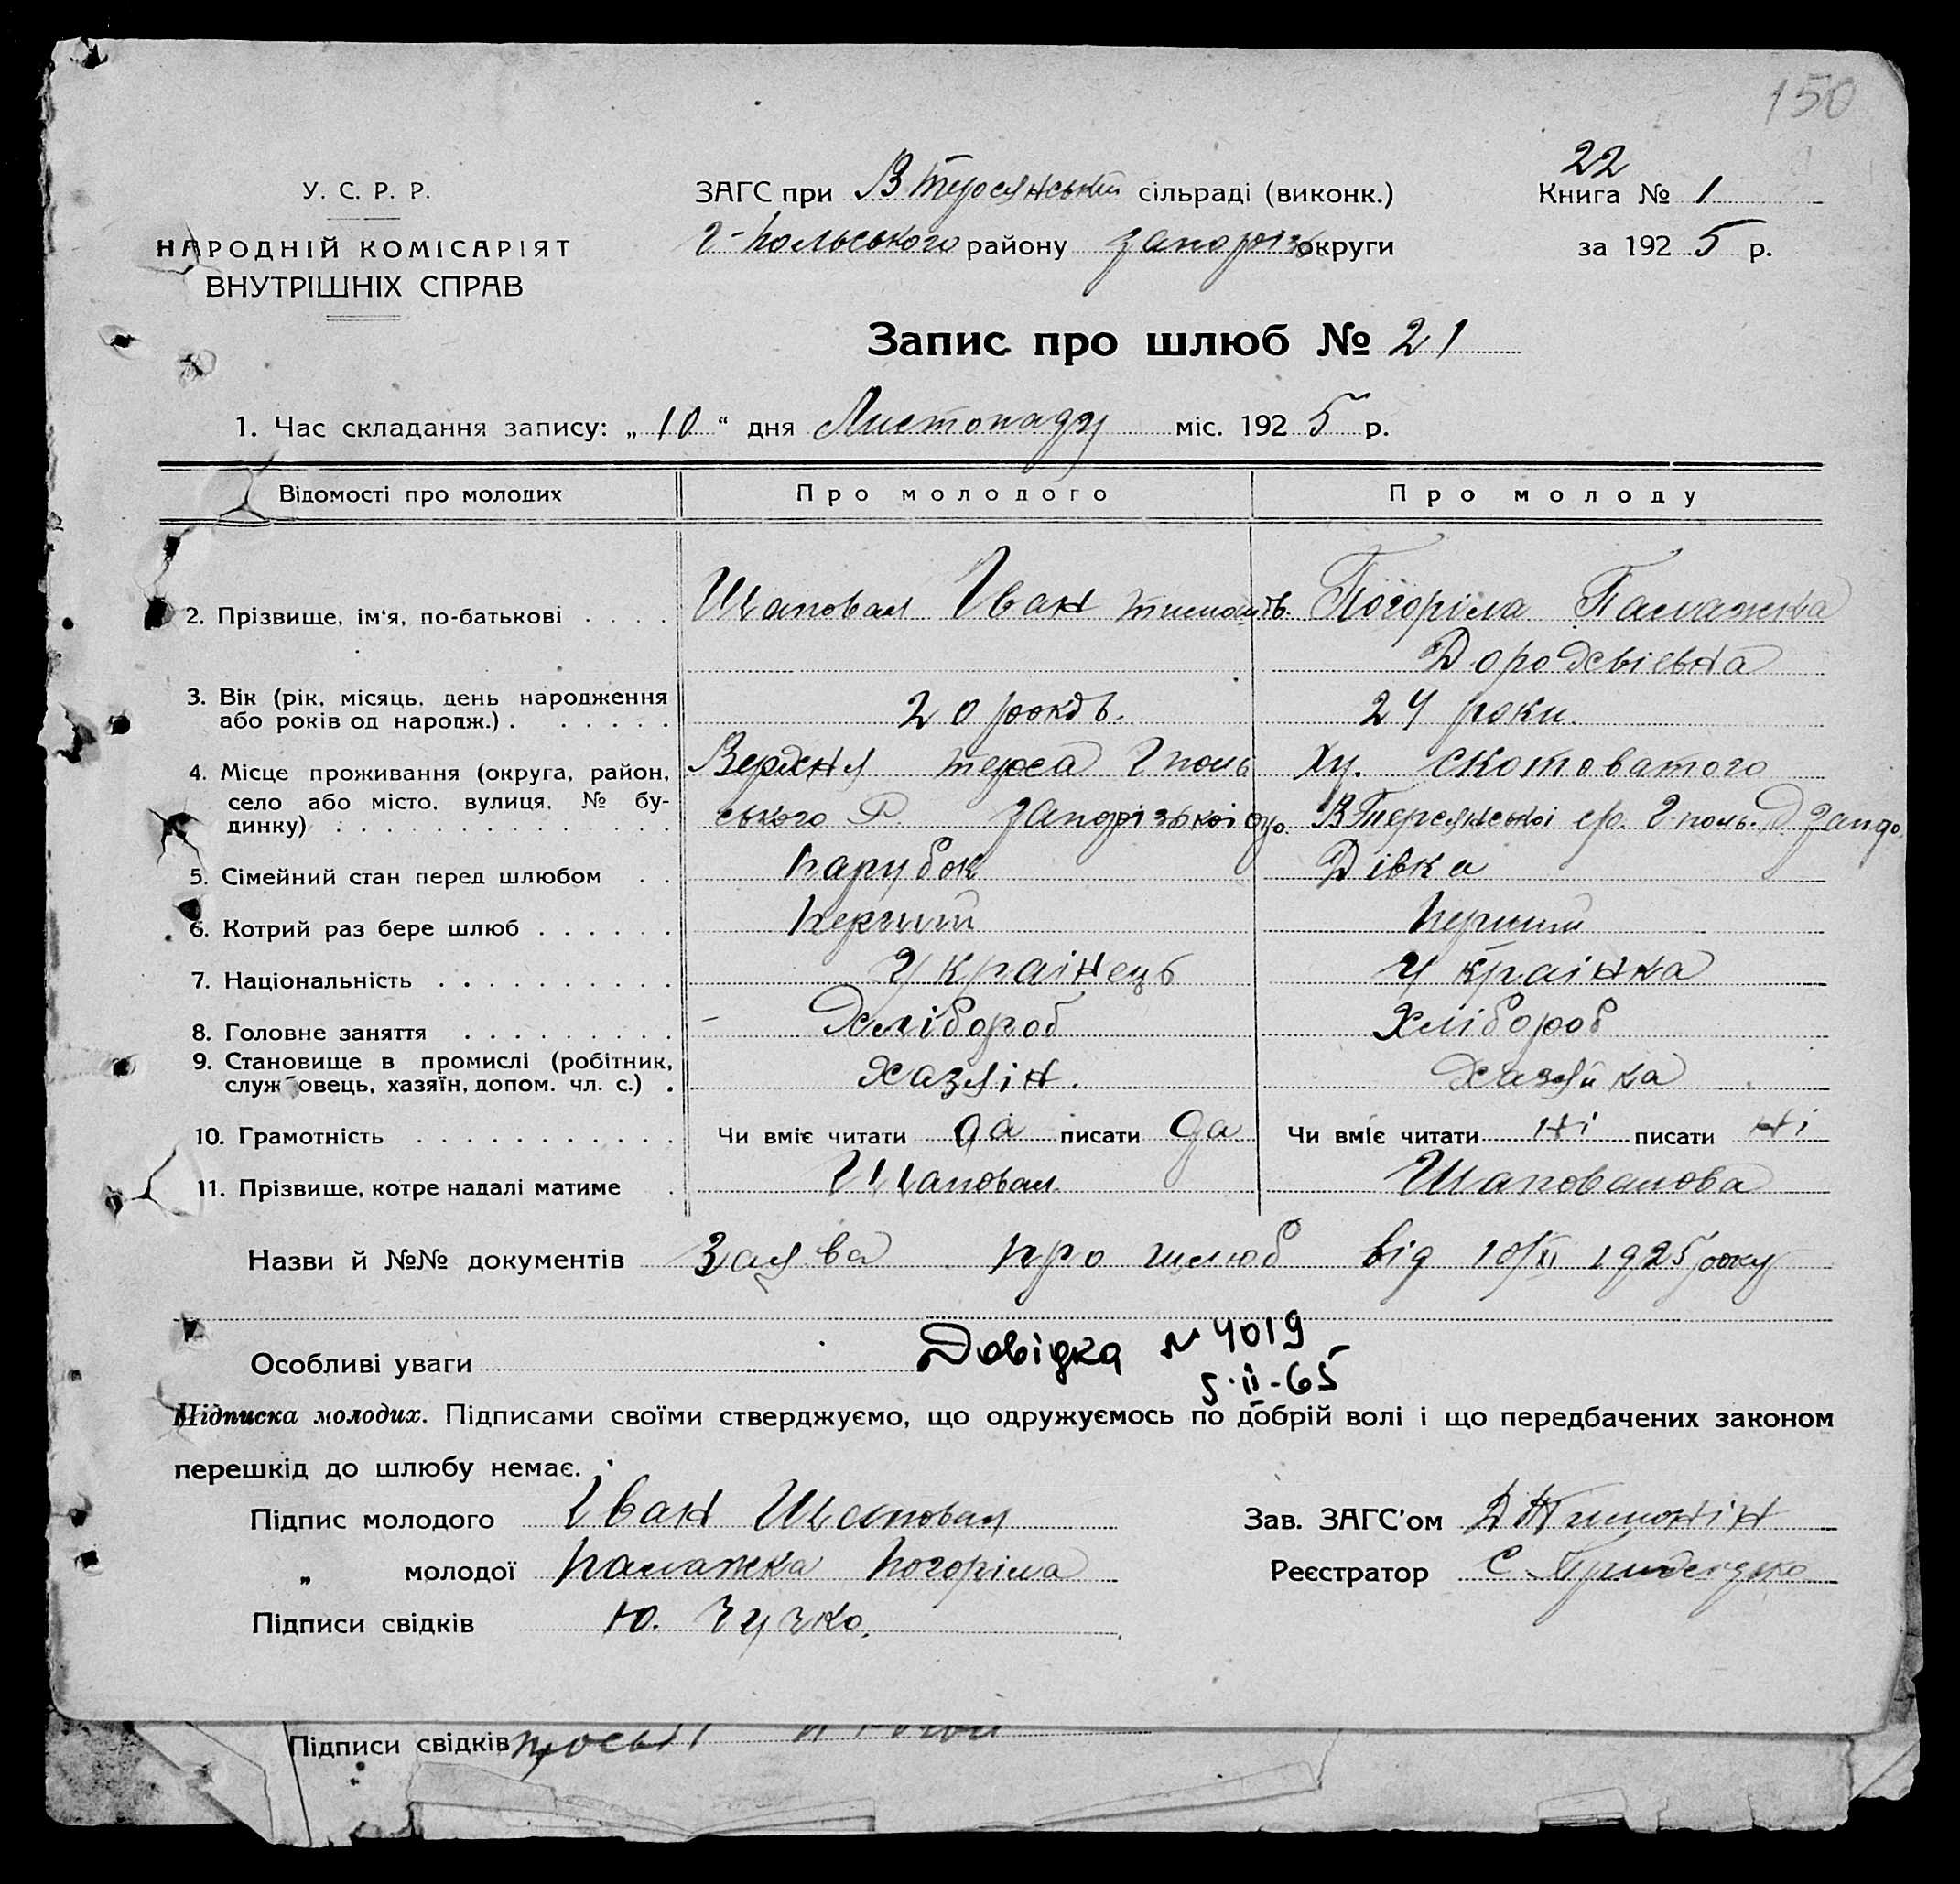 150
У. С. Р. Р.
НАРОДНІЙ КОМІСАРІЯТ
ВНУТРІШНІХ СПРАВ
ЗАГС при В Терсянській сільраді (виконк.)
Г-Польського району Запоріз округи
22
Книга № 1
за 1925 р.
Запис про шлюб № 21
1. Час складання запису: „10“ дня Листопаду міс. 1925 р.
Відомості про молодих
Про молодого
Про молоду
2. Прізвище, ім'я, по-батькові . . . .
Шаповал Іван Тимошів.
Погоріла Палажка
Дородевіевна
3. Вік (рік, місяць, день народження
або років од народж.) . . . . . .
20 років.
24 роки.
4. Місце проживання (округа, район,
село або місто, вулиця, № бу-
динку) . . . . . . . . . . . . .
Верхня Терса Гполь
ського Р. Запорізької окр.
Ху. Скотоватого
ВТерсянської с/р. Г-поль. Запо.
5. Сімейний стан перед шлюбом . .
Парубок
Дівка
6. Котрий раз бере шлюб . . . . . .
Перший
Перший
7. Національність . . . . . . . . . .
Українець
Українка
8. Головне заняття . . . . . . . . .
- Хлібороб
Хлібороб
9. Становище в промислі (робітник,
службовець, хазяїн, допом. чл. с.) .
Хазяін.
Хазяйка
10. Грамотність . . . . . . . . . . .
Чи вміє читати да писати да
Чи вміє читати ні писати ні
11. Прізвище, котре надалі матиме .
Шаповал.
Шаповалова
Назви й №№ документів Заява про шлюб від 10/XI 1925 року
Особливі уваги Довідка N 4019
5·II-65
Підписка молодих. Підписами своїми стверджуємо, що одружуємось по добрій волі і що передбачених законом
перешкід до шлюбу немає.
Підпис молодого Іван Шаповал
„ молодої Палажка Погоріла
Підписи свідків Ю. Зузко.
Зав. ЗАГС'ом
Реєстратор С.
Підписи свідків